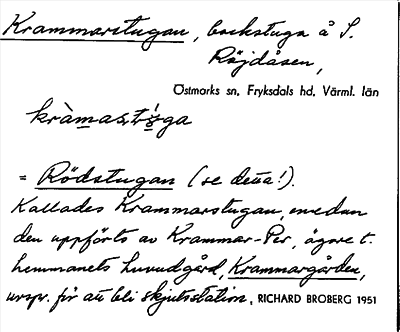 Krammarstugan, backstuga å S.
Röjdåsen,
Östmarks sn, Fryksdals hd, Värml. län
= Rödstugan (se detta!).
Kallades Krammarstugan, emedan
den uppförts av Krammar-Per, ägare t.
hemmanets huvudgård, Krammargården,
urspr. för att bli skjutsstation, RICHARD BROBERG 1951